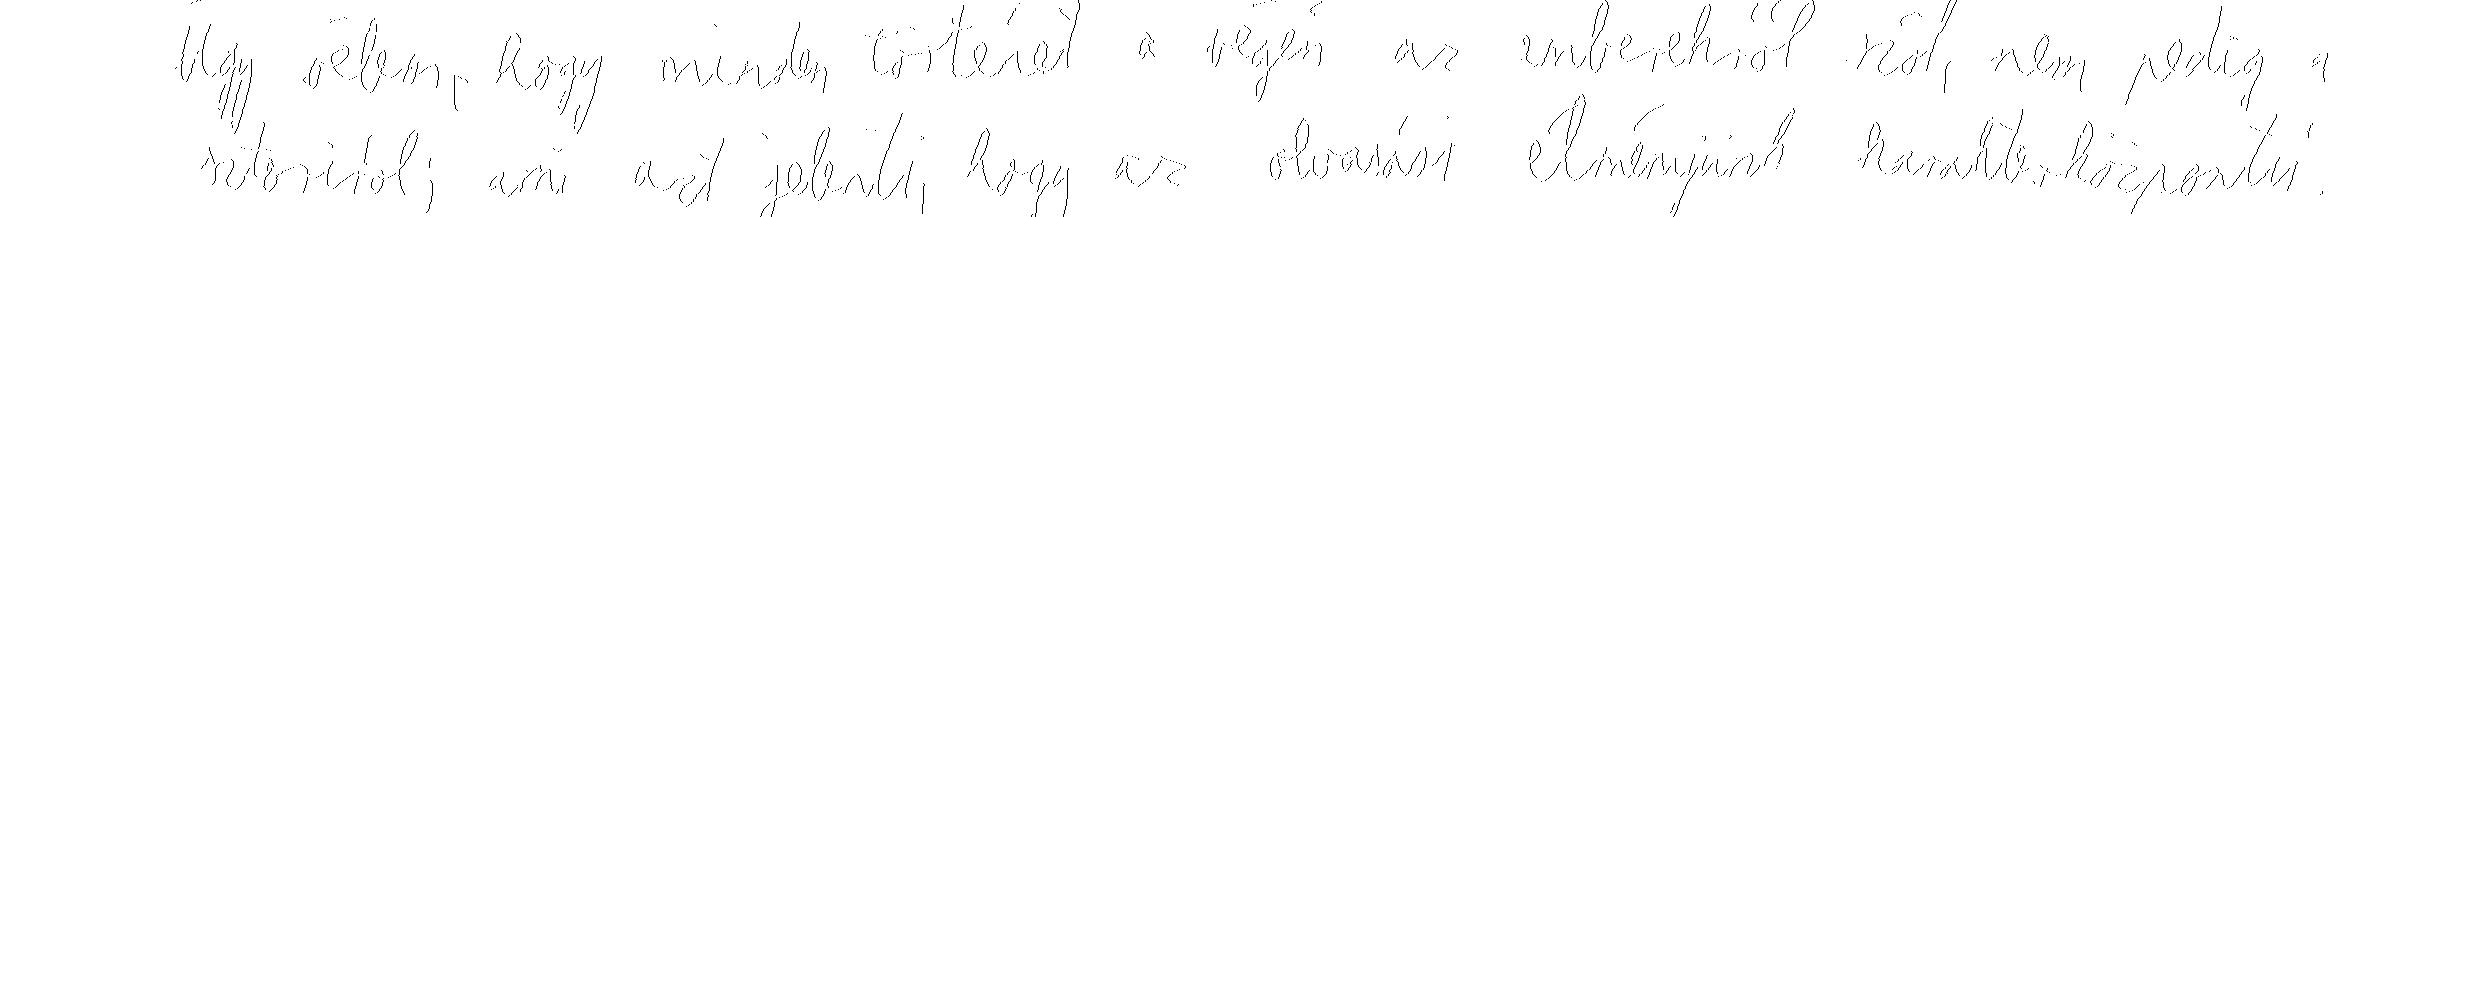 Úgy vélem, hogy minden történet a végén az emberekről szól, nem pedig a
sztoriról, ami azt jelenti, hogy az olvasási élményünk karakterközpontú.